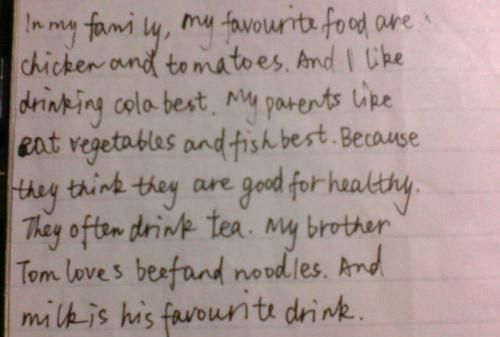 In my family, my favourite food are
chicken and tomatoes. And I like
drinking cola best. My parents like
eat vegetables and fish best. Because
they think they are good for healthy.
They often drink tea. My brother
Tom loves beef and noodles. And
milk is his favourite drink.